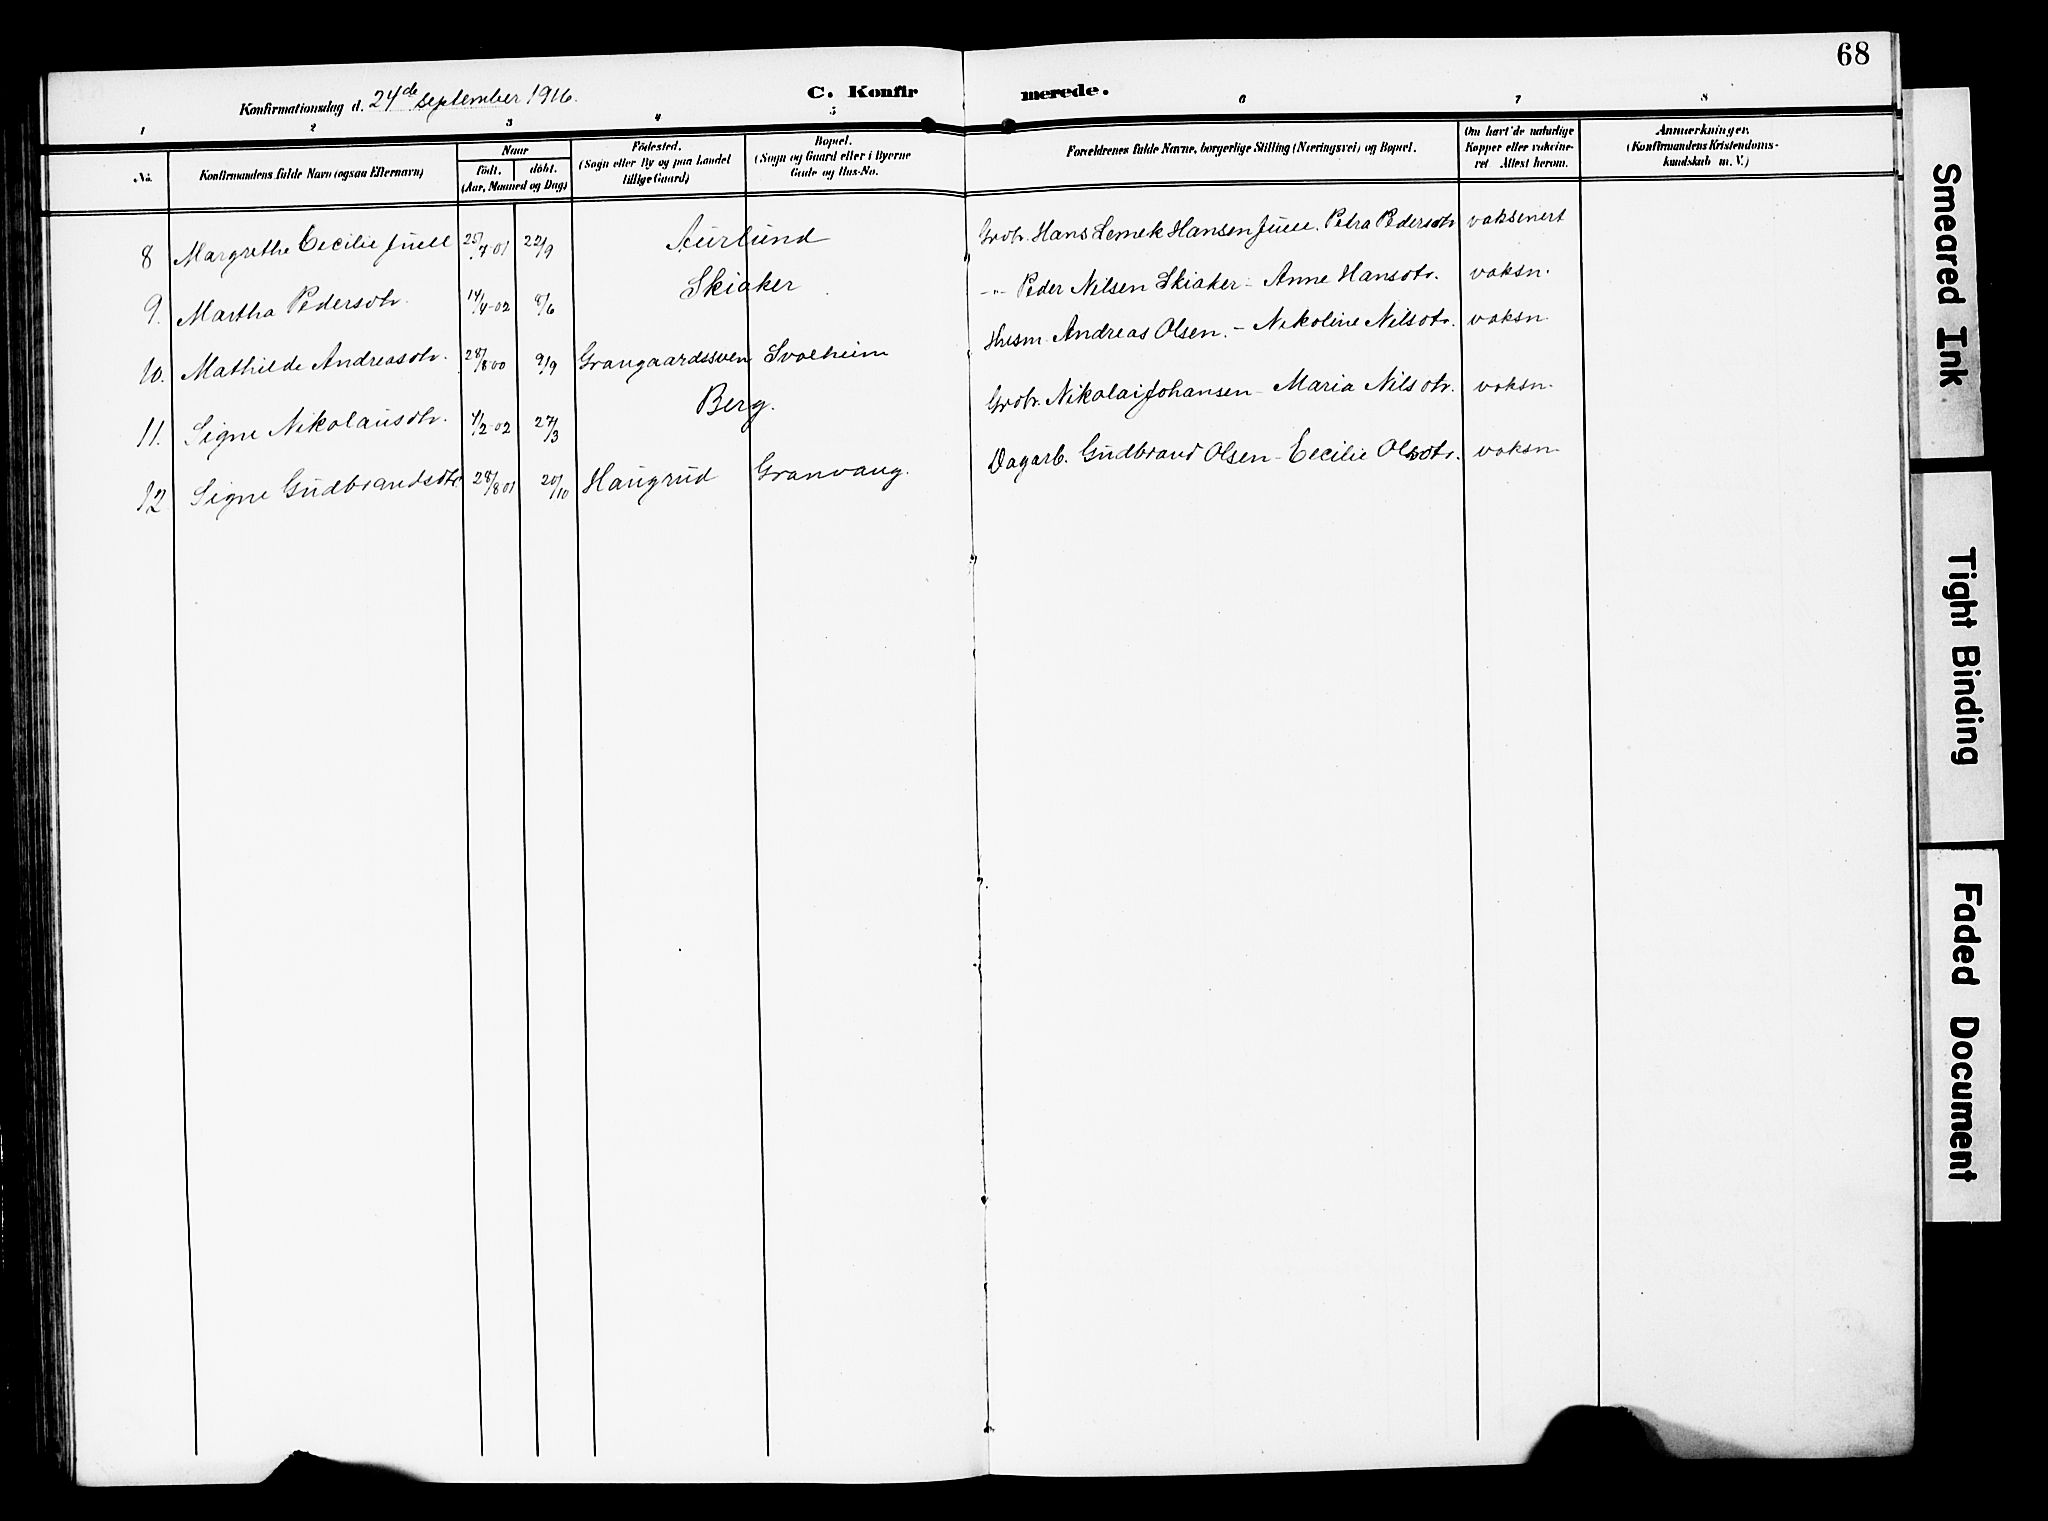 68
Konfirmationsdag d. 24de september 1916.
C. Konfirmerede.
1 2 3 4 5 6 7 8
No.
Konfirmandens fulde Navn (ogsaa Efternavn)
Naar
födt. döbt.
(Aar, Maaned og Dag)
Födested.
(Sogn eller By og paa Landet
tillige Gaard)
Bopæl.
(Sogn og Gaard eller i Byerne
Gade og Hus-No.
Forældrenes fulde Navne, borgerlige Stilling (Næringsvei) og Bopæl.
Om havt de naturlige
Kopper eller vakcine-
ret. Attest herom.
Anmærkninger.
(Konfirmandens Kristendoms-
kundskab m. V.)
8 Margrethe Cecilie Juell 25/4-01 22/9 Aurlund Grdbr. Hans Lemek Hansen Juell. Petra Pedersdtr vaksinert
9. Martha Pedersdtr. 14/4-02 8/6 Skiaker -"- Peder Nilsen Skiaker - Anne Hansdtr. vaksn.
10. Mathilde Andreasdtr. 28/8 00 9/9 Grangaardssven Svolheim Husm. Andreas Olsen. - Nikoline Nilsdtr. vaksn.
11. Signe Nikolaisdtr. 4/2-02 27/3 Berg. Grdbr. Nikolai Johansen - Maria Nilsdtr. vaksn.
12 Signe Gudbrandsdtr 28/8 01 20/10 Haugrud Granvang. Dagarb. Gudbrand Olsen - Cecilie Olsdtr. vaksn.
Smeared Ink
Tight Binding
Faded Document